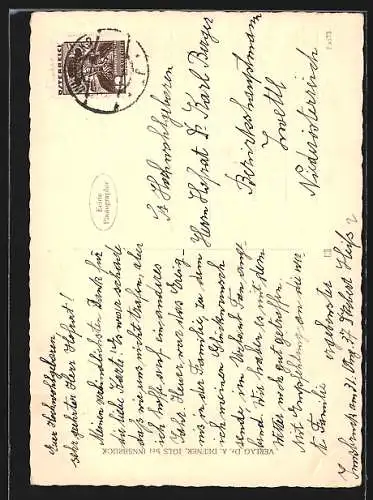 Euer Hochwohlgeboren
sehr geehrter Herr Hofrat!
Meinen verbindlichsten Dank für
die liebe Karte! Es war schade
daß wir uns nicht trafen, aber
ich hoffe auf ein anderes
Jahr. Heuer war das Ereig-
nis in der Familie, zu dem
ich meinen Glückwunsch
sende, im Vorstand
Wir hatten es mit dem
Wetter nicht gut getroffen.
Mit Empfehlung von Haus
zu Familie ergebenster
Innsbruck am 31. Aug. 37
VERLAG DR. A. DEFNER, IGLS bei INNSBRUCK
Echte
Photographie
ÖSTERREICH
Sr. Hochwohlgeboren
Herrn Hofrat Dr. Karl Berger
Bezirkshauptmann
Zwettl
Niederösterreich